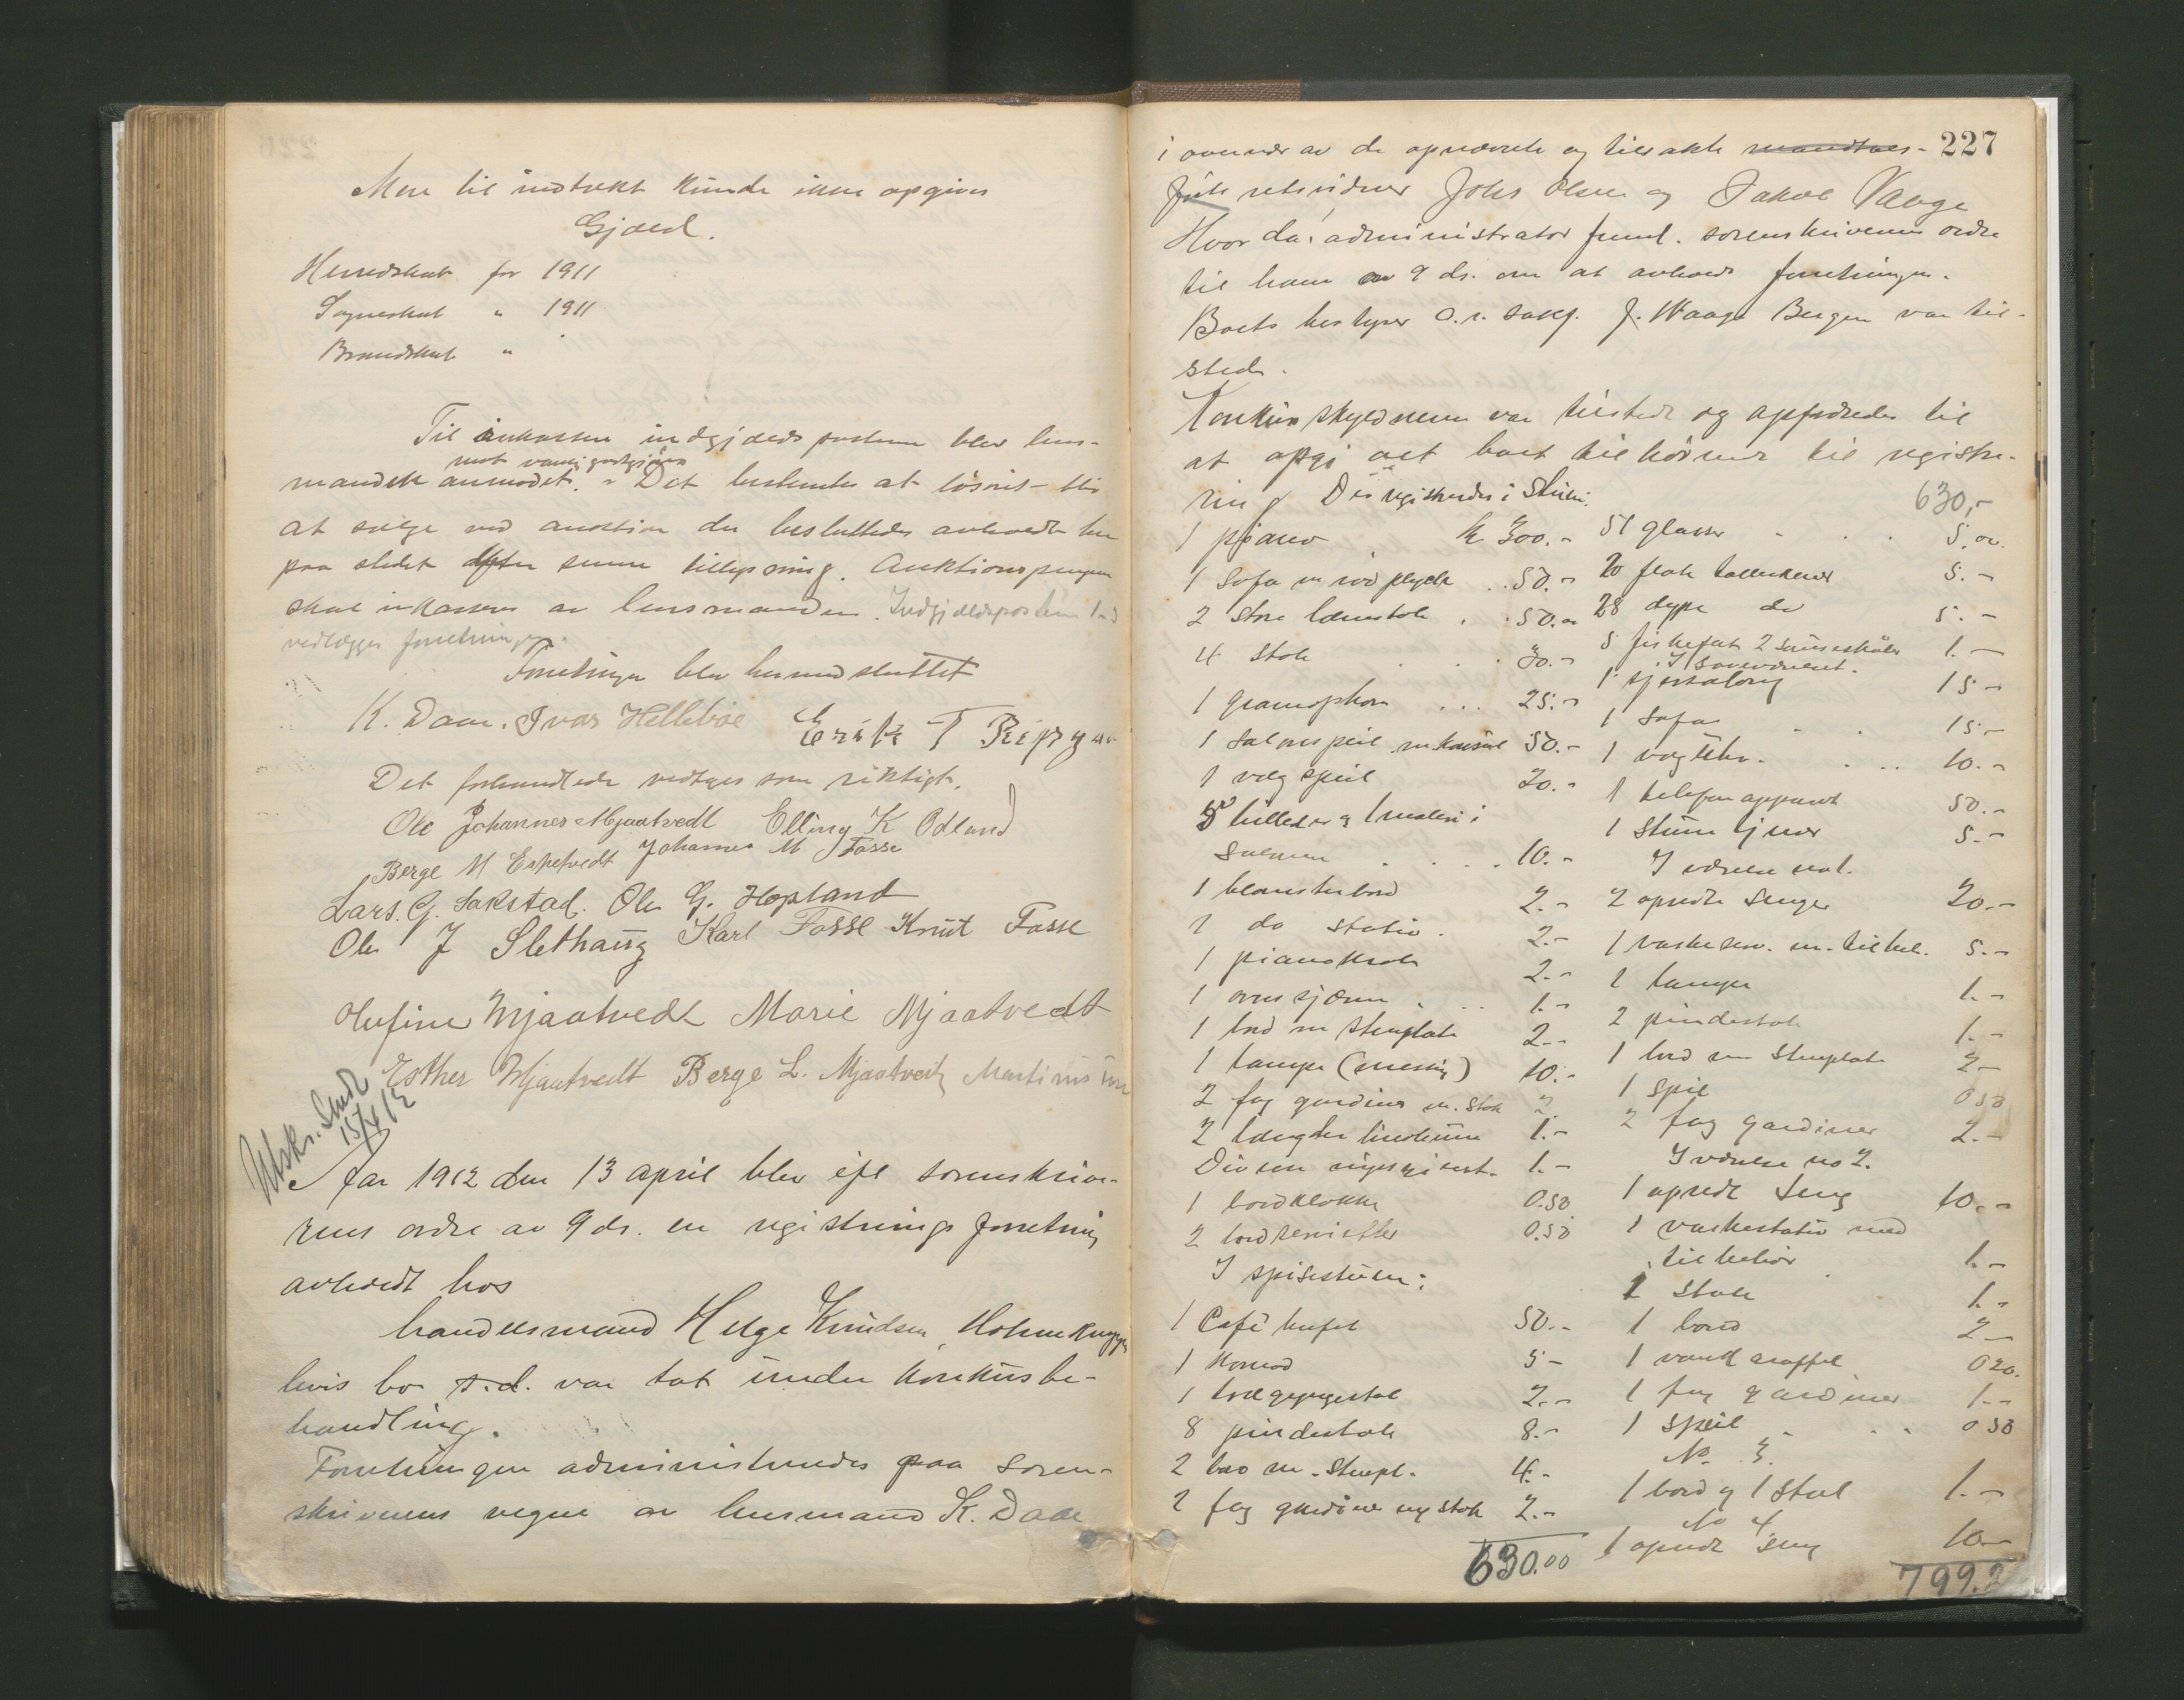 Mere til indtækt kunde ikke opgives
Gjæld.
Herredskat for 1911
Sogneskat " 1911
Brandskat "
Til inkassere indgjældsposterne blev lens-
mot vanlig godtgjørelse
manden anmodet. - Det bestemtes at løsøret blir
at sælge ved auktion der besluttedes avholdt her
paa stedet efter senere tillysning. Auktionspengene
skal inkasseres av lensmanden. Indgjældsposterne
vedlægges forretningen.
Forretningen blev hermed sluttet
K. Daae. Ivar Hellebøe Erik T
Det forhandlede vedtages som riktigt.
Ole Johannes Mjaatvedt Elling K Odland
Berge M Espetvedt Johannes M Fosse
Lars. G. Sakstad. Ole G. Hopland
Ole J Slethaug Karl Fosse Knut Fosse
Olufine Mjaatvedt Marie Mjaatvedt
Esther Mjaatvedt Berge L. Mjaatveit Martinus
Utskr. Sendt
15/4 12
Aar 1912 den 13 april blev efter sorenskrive-
rens ordre av 9 ds. en registreringsforretning
avholdt hos
handelsmand Helge Knudsen, Holmeknappen
hvis bo s.d. var tat under konkursbe-
handling.
Forretningen administreredes paa soren-
skriverens vegne av lensmand K. Daae
227
i overvær av de opnævnte og tilsakte mandtals-
førte retsvidner Johs Olsen og Jakob Vaage
Hvor da: administrator freml. sorenskriverens ordre
til ham av 9 ds. om at avholde forretningen.
Boets bestyrer o.r. sakf. J. Waage Bergen var til-
stede.
Konkursskyldneren var tilstede og opfordredes til
at opgi alt boet tilhørende til registre-
ring Der registreredes i Stuen:
1 piano kr 300.-
1 Sofa m rød plysch 50.-
2 store lænestole 50.00
4 stole 30.-
1 gramophon 25.-
1 Salonspeil m konsol 50.-
1 vægspeil 20.-
billeder og 1 maleri i
Salonen 10.-
1 blomsterbord 2.-
1 do stativ 2.-
1 pianokrak 2.-
1 ovnsskjærm 1.-
1 bord m stenplate 2.-
1 lampe (messing) 10.-
2 fag gardiner m. stok 2.
2 længder linoleum 1.-
Diverse nipsgjenst. 1.-
1 bordklokke 0.50
2 bordservietter 0.50
I spisestuen:
1 Café bufet 50.-
1 Komod 5-
1 gyngestol 2.-
8 pindestole 8.-
2 bord m. stenpl. 4.-
2 fag gardiner og stok 2.-
630.00
630,-
51 glasser 5.00
20 flate tallerkener 5.-
28 dype do 5.-
5 fiskefat 2 sauseskåler 1.-
I soveværelset.
1 sjeselong 15-
1 Sofa 15-
1 vægur 10.-
1 telefonapparat 50.-
1 Stueur 5.-
I værelse no 1.
2 opredte Senger 20.-
1 vaskeserv. m. tilbeh. 5.-
1 lampe 1.-
2 pindestole 1.-
1 bord m Stenplate 2-
1 speil 0 50
2 fag gardiner 2.-
I værelse no 2.
1 opredt Seng 10.-
1 vaskestativ med
tilbehør 1.-
1 Stole 1.-
1 bord 2-
1 vandkaraffel 0 20.
1 fag gardiner 1.-
1 speil 0 50
No 3.
1 bord og 1 Stol 1.-
No 4.
1 opredt Seng 10-
799.2